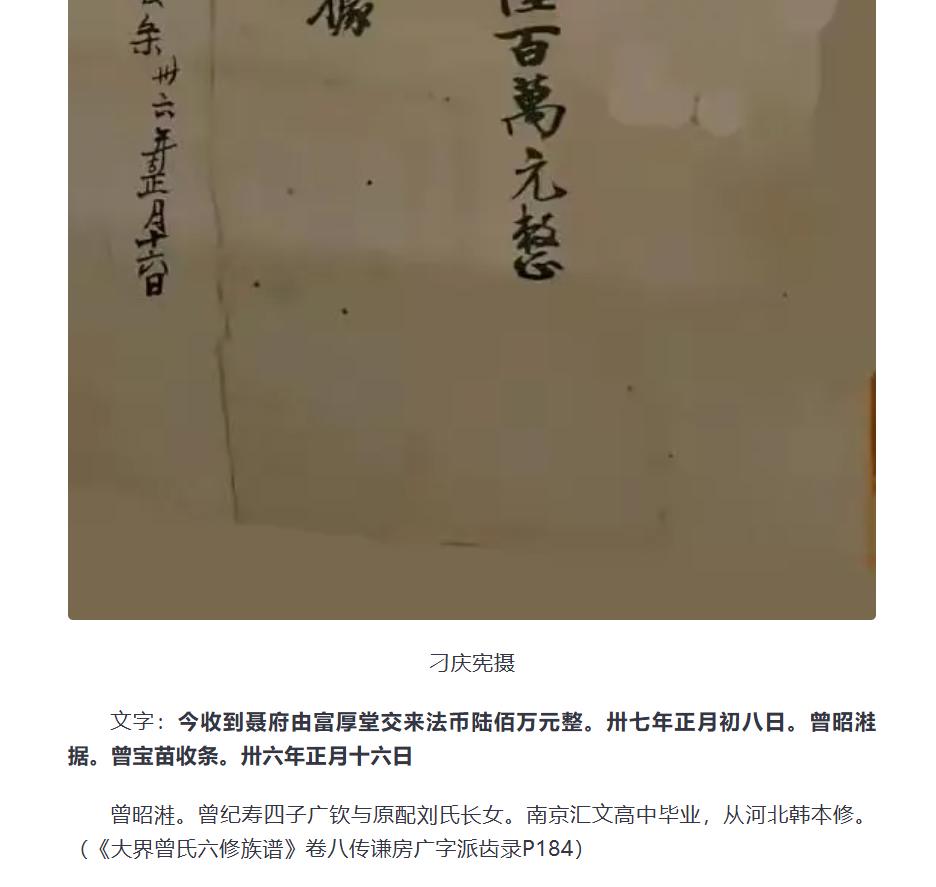 百萬元整
據
条卅六年正月十六日
刁庆宪摄
文字：今收到聂府由富厚堂交来法币陆佰万元整。卅七年正月初八日。曾昭溎
据。曾宝苗收条。卅六年正月十六日
曾昭溎。曾纪寿四子广钦与原配刘氏长女。南京汇文高中毕业，从河北韩本修。
（《大界曾氏六修族谱》卷八传谦房广字派齿录P184）